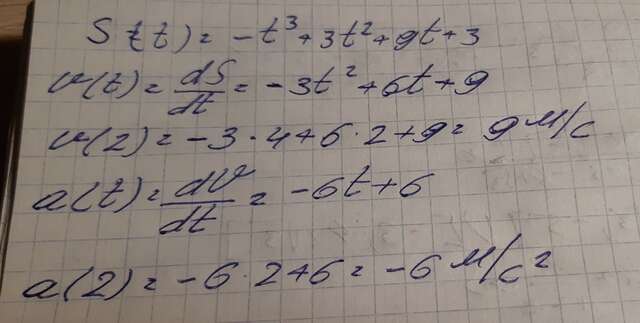 S(t) = -t³+3t²+9t+3
v(t) = dS/dt = -3t²+6t+9
v(2) = -3·4+6·2+9 = 9 м/с
a(t) = dV/dt = -6t+6
a(2) = -6·2+6 = -6 м/с²